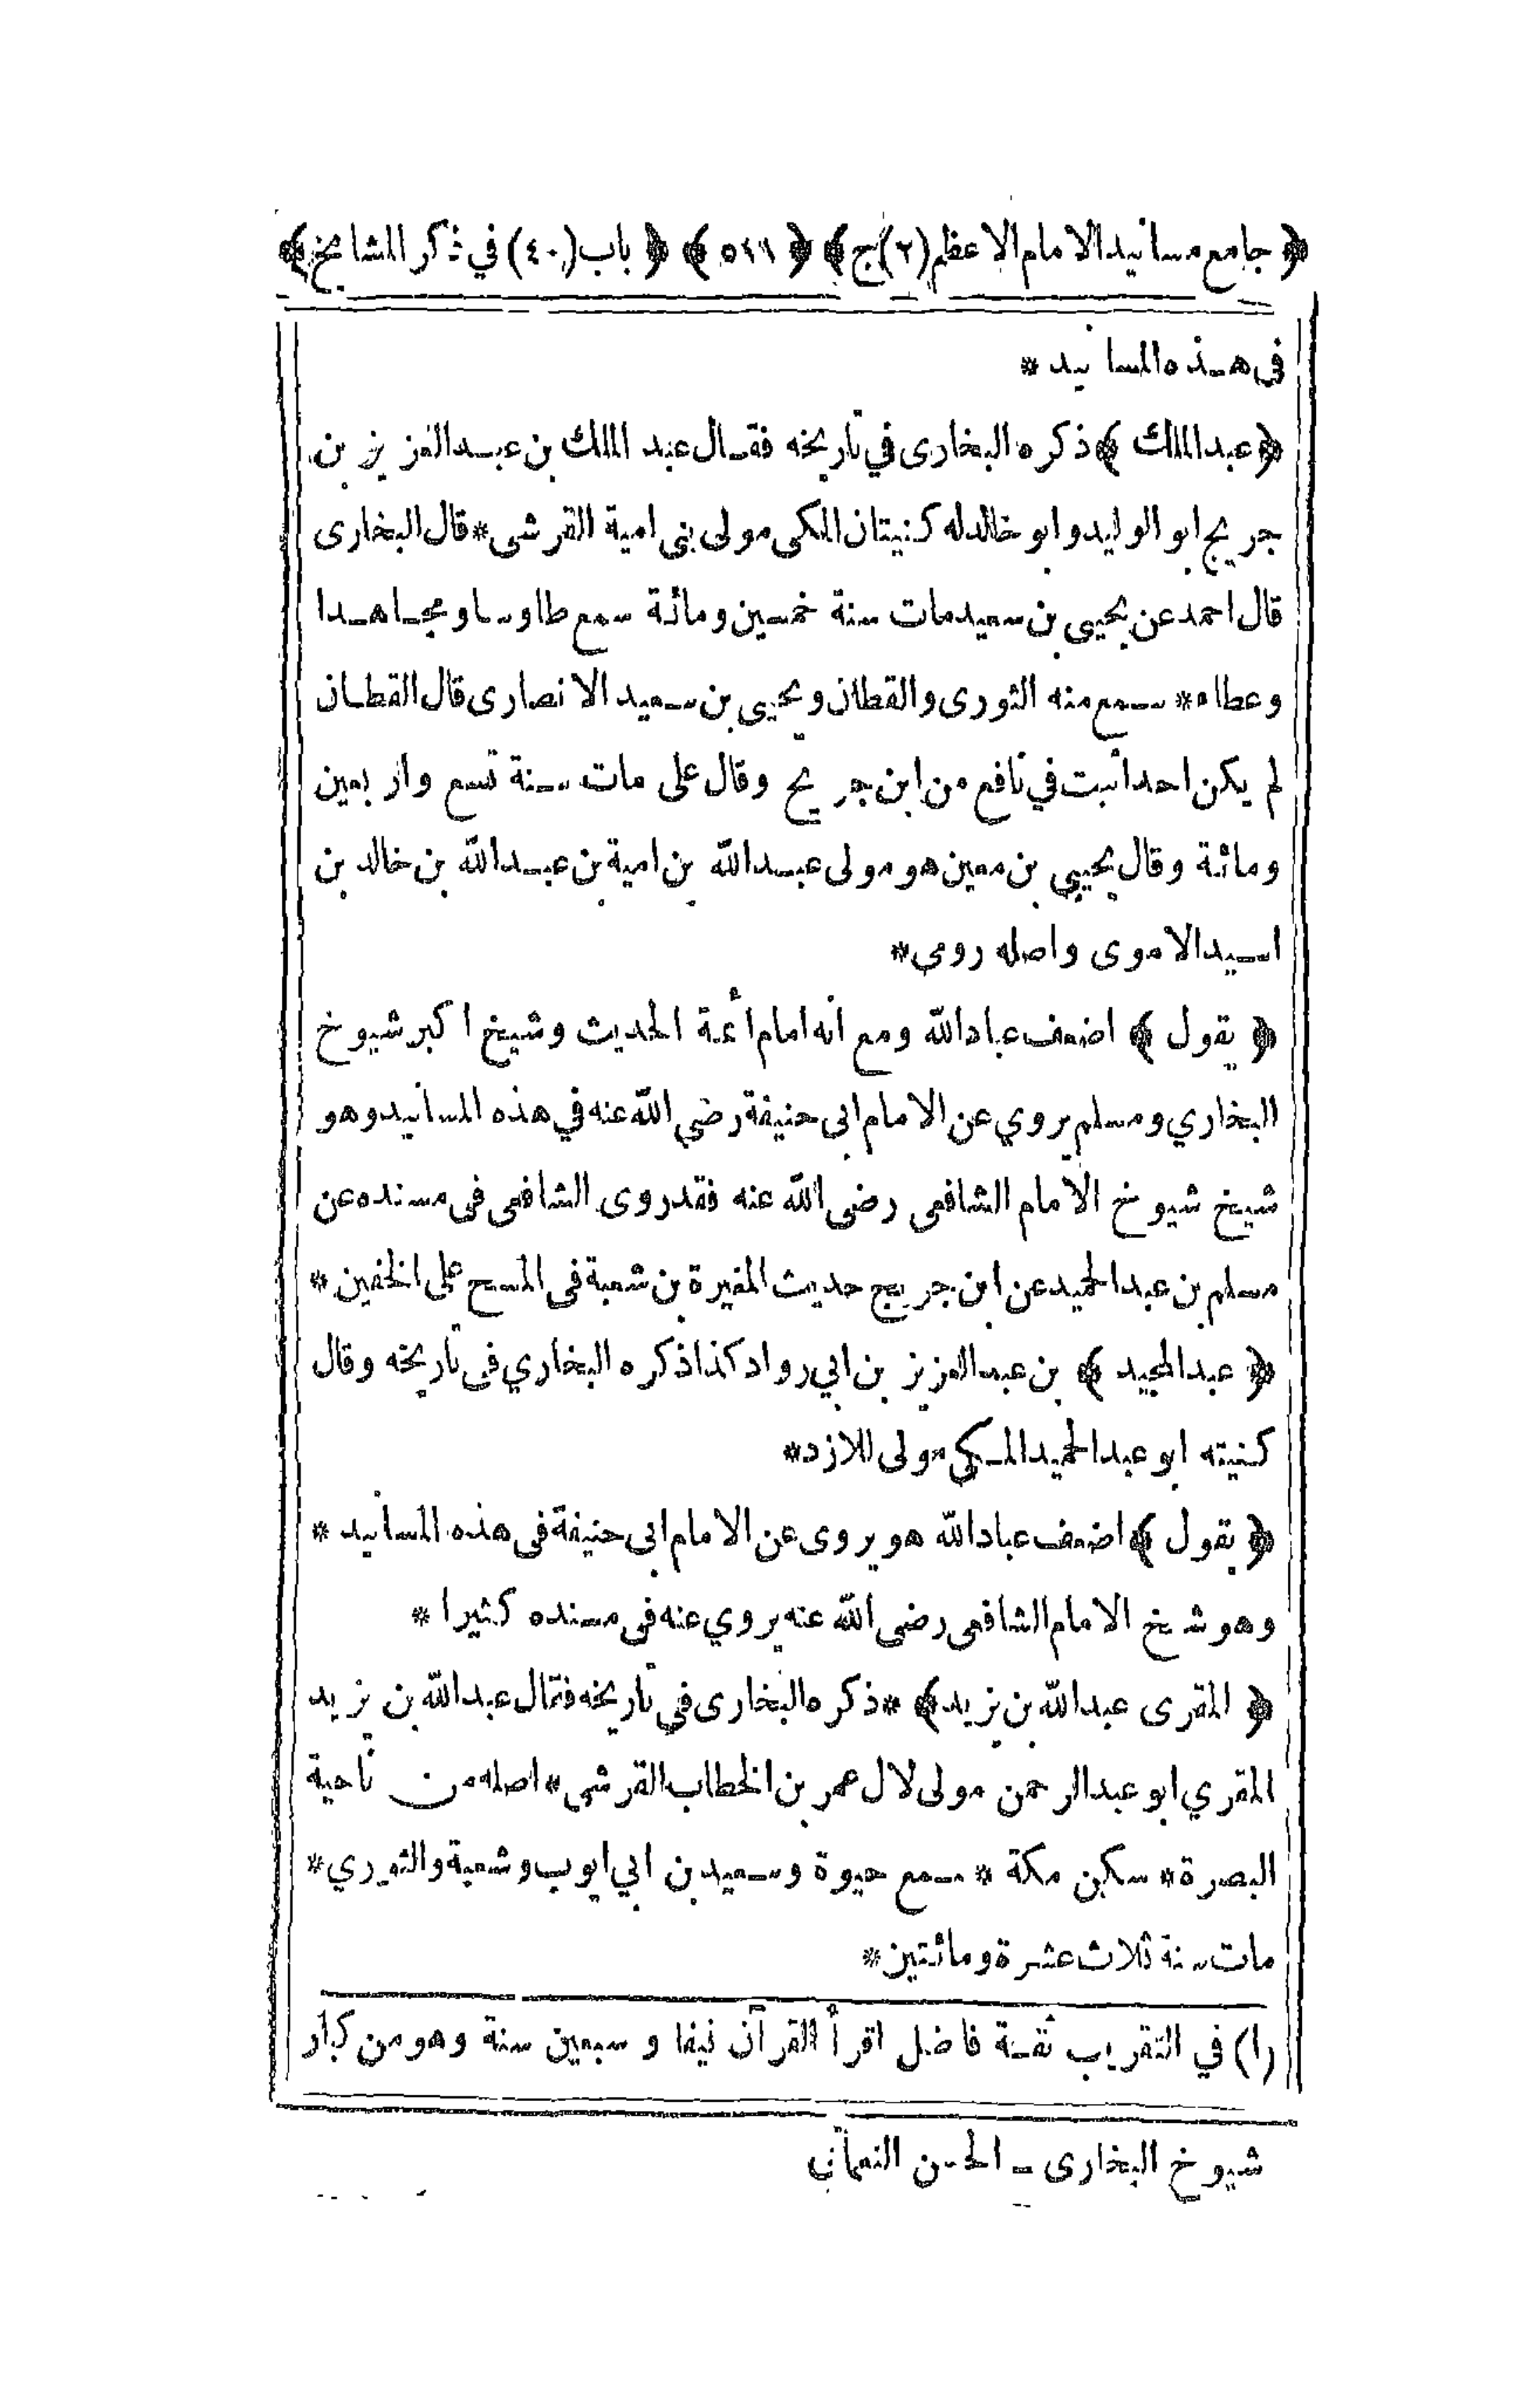 ﴿ جامع مسانيد الامام الاعظم (٢) ج ﴾ ﴿ ٥٤١ ﴾ ﴿ باب (٤٠) في ذكر المشايخ ﴾
في هذه المسانيد *
﴿ عبد الملك ﴾ ذكره البخارى في تاريخه فقال عبد الملك بن عبد العزيز بن
جريج ابو الوليد وابو خالد له كنيتان المكى مولى بني امية القرشى * قال البخارى
قال احمد عن يحيى بن سعيد مات سنة خمسين ومائة سمع طاوسا ومجاهدا
وعطاء * سمع منه الثورى والقطان ويحيى بن سعيد الانصارى قال القطان
لم يكن احد اثبت في نافع من ابن جريج وقال على مات سنة تسع واربعين
ومائة وقال يحيى بن معين هو مولى عبد الله بن امية بن عبد الله بن خالد بن
اسيد الاموى واصله رومى *
﴿ يقول ﴾ اضعف عباد الله ومع انه امام أئمة الحديث وشيخ اكبر شيوخ
البخاري ومسلم يروي عن الامام ابى حنيفة رضي الله عنه في هذه المسانيد وهو
شيخ شيوخ الامام الشافعى رضى الله عنه فقد روى الشافعى فى مسنده عن
مسلم بن عبد الحميد عن ابن جريج حديث المغيرة بن شعبة فى المسح على الخفين *
﴿ عبد المجيد ﴾ بن عبد العزيز بن ابي رواد كذا ذكره البخاري فى تاريخه وقال
كنيته ابو عبد الحميد المكي مولى للازد *
﴿ يقول ﴾ اضعف عباد الله هو يروى عن الامام ابى حنيفة فى هذه المسانيد *
وهو شيخ الامام الشافعى رضى الله عنه يروي عنه فى مسنده كثيرا *
﴿ المقرى عبد الله بن يزيد ﴾ * ذكره البخارى في تاريخه فقال عبد الله بن يزيد
المقري ابو عبد الرحمن مولى لال عمر بن الخطاب القرشى * اصله من ناحية
البصرة * سكن مكة * سمع حيوة وسعيد بن ابي ايوب وشعبة والثوري *
مات سنة ثلاث عشرة ومائتين *
(١) في التقريب ثقة فاضل اقرأ القرآن نيفا و سبعين سنة وهو من كبار
شيوخ البخارى ـ الحسن النعماني